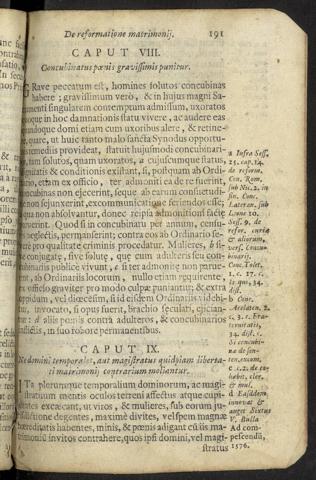 De reformatione matrimonij. 191
CAPUT VIII.
Concubinatus pœnis gravissimis punitur.
GRave peccatum est, homines solutos concubinas
habere; gravissimum verò, & in hujus magni Sa-
menti singularem contemptum admissum, uxoratos
quoque in hoc damnationis statu vivere, ac audere eas
quandoque domi etiam cum uxoribus alere, & retine-
re, quare, ut huic tanto malo sancta Synodus opportu-
remediis provideat, statuit hujusmodi concubinari-
tam solutos, quam uxoratos, a cujuscumque status,
dignitatis & conditionis existant, si, postquam ab Ordi-
nario, etiam ex officio, ter admoniti ea de re fuerint,
concubinas non ejecerint, seque ab earum consuetudi-
non sejunxerint, excommunicatione feriendos esse;
qua non absolvantur, donec reipsa admonitioni factæ
paruerint. Quod si in concubinatu per annum, censu-
neglectis, permanserint; contra eos ab Ordinario se-
pro qualitate criminis procedatur. Mulieres, b si-
conjugatæ, sive solutæ, quæ cum adulteris seu con-
cubinariis publicè vivunt, c si ter admonitæ non parue-
ab Ordinariis locorum, nullo etiam requirente,
officio graviter pro modo culpæ puniantur; & extra
oppidum, vel diœcesim, si id eisdem Ordinariis videbi-
tur, invocato, si opus fuerit, brachio sæculari, ejician-
tur: d aliis pœnis contra adulteros, & concubinarios
inflictis, in suo robore permanentibus.
a Infra Sess.
25. cap. 14.
de reform.
Con. Rom.
sub Nic. 2. in
fin. Conc.
Lateran. sub
Leone 10.
Sess. 9. de
refor. curiæ
& aliorum,
vers. Concu-
binarij.
Conc. Tolet.
1. c. 17. c.
is qui, 34.
dist.
b Conc.
Arelaten. 2.
c. 3. c. Fra-
ternitatis,
34. dist.
Si concubi-
næ de sen-
ten. excom.
c c. 2. de co-
habit. cler.
& mul.
d Easddem
innovat &
auget Sixtus
V. Bulla
Ad com-
pescendū,
1576.
CAPUT IX.
Ne domini temporales, aut magistratus quidpiam liberta-
ti matrimonij contrarium moliantur.
ITa plerumque temporalium dominorum, ac magi-
stratuum mentis oculos terreni affectus atque cupi-
ditates excæcant, ut viros, & mulieres, sub eorum ju-
risdictione degentes, maximè divites, vel spem magnæ
hæreditatis habentes, minis, & pœnis adigant cū iis ma-
trimoniū invitos contrahere, quos ipsi domini, vel magi-
stratus